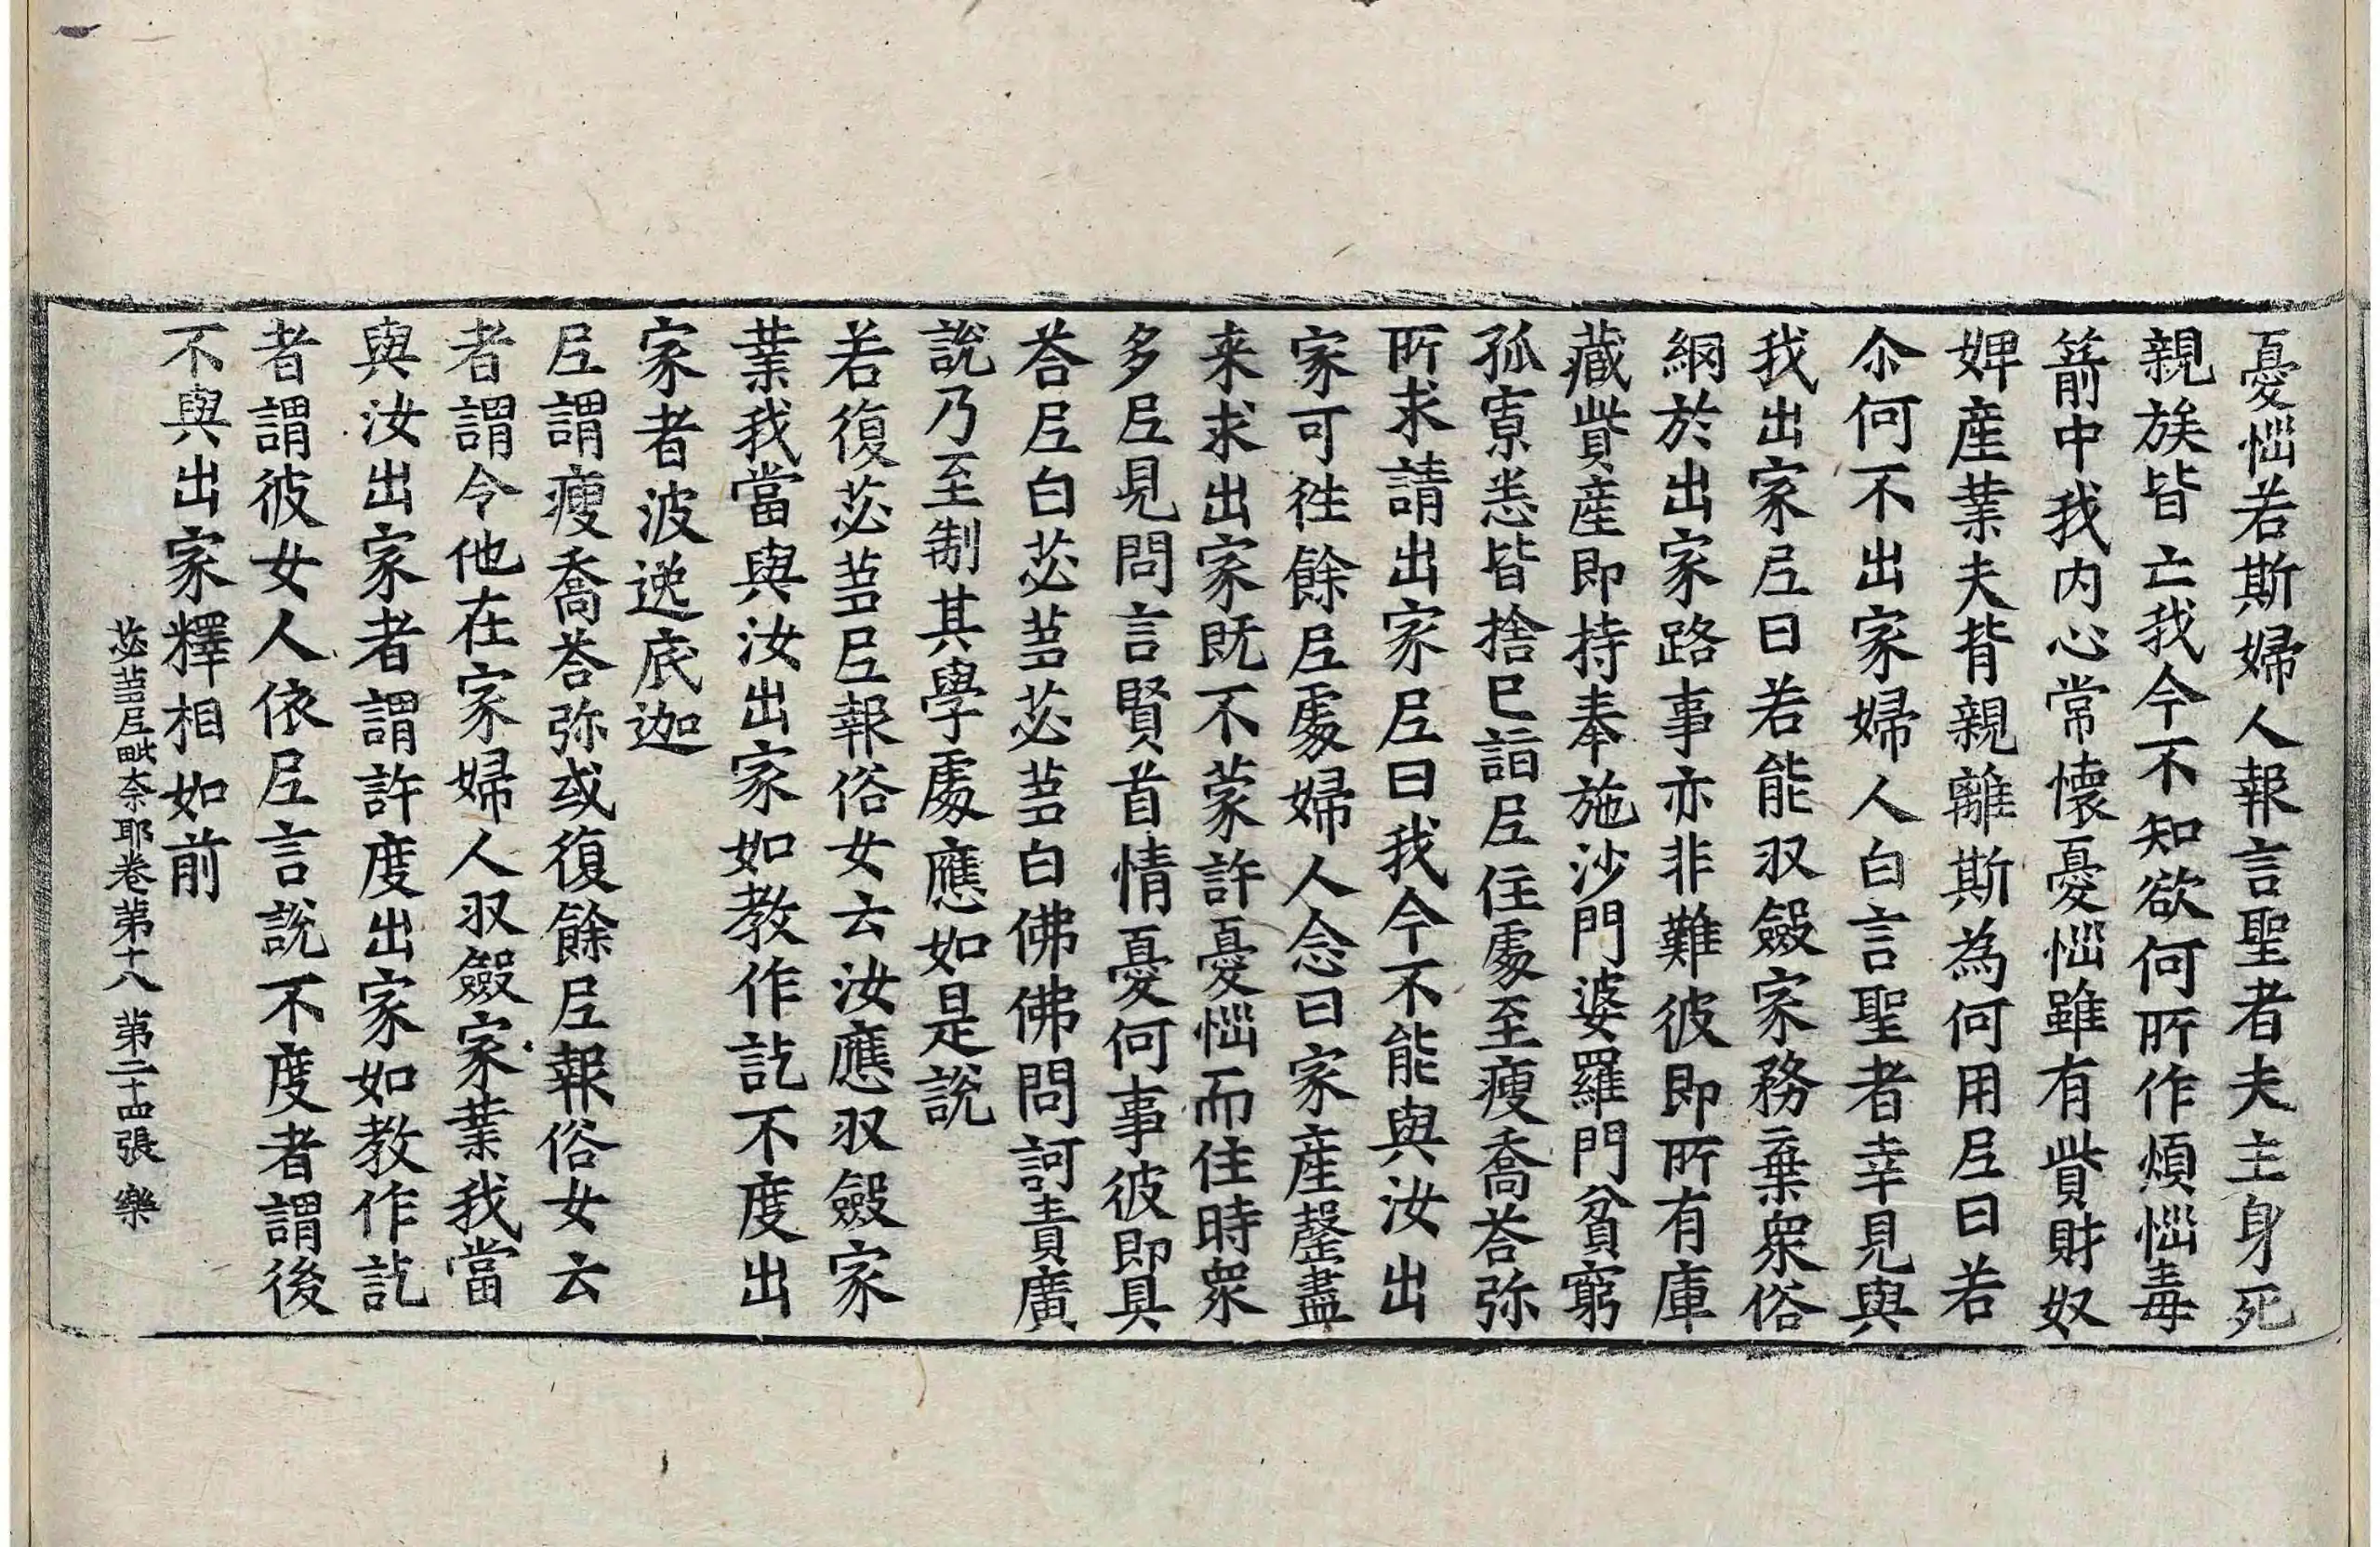 憂惱若斯婦人報言聖者夫主身死
親族皆亡我今不知欲何所作煩惱毒
箭中我内心常懷憂惱雖有貲財奴
婢産業夫背親離斯為何用𡰱曰若
尒何不出家婦人白言聖者幸見與
我出家𡰱曰若能収斂家務棄衆俗
網於出家路事亦非難彼即所有庫
藏貲産即持奉施沙門婆羅門貧窮
孤㷀悉皆捨已詣𡰱住處至瘦喬荅弥
所求請出家𡰱曰我今不能與汝出
家可往餘𡰱處婦人念曰家産罄盡
来求出家既不蒙許憂惱而住時衆
多𡰱見問言賢首情憂何事彼即具
荅𡰱白苾蒭苾蒭白佛佛問訶責廣
說乃至制其學處應如是說
若復苾蒭𡰱報俗女云汝應収斂家
業我當與汝出家如教作訖不度出
家者波逸底迦
𡰱謂瘦喬荅弥或復餘𡰱報俗女云
者謂令他在家婦人収斂家業我當
與汝出家者謂許度出家如教作訖
者謂彼女人依𡰱言說不度者謂後
不與出家釋相如前
苾蒭𡰱毗奈耶卷第十八 第二十四張 樂